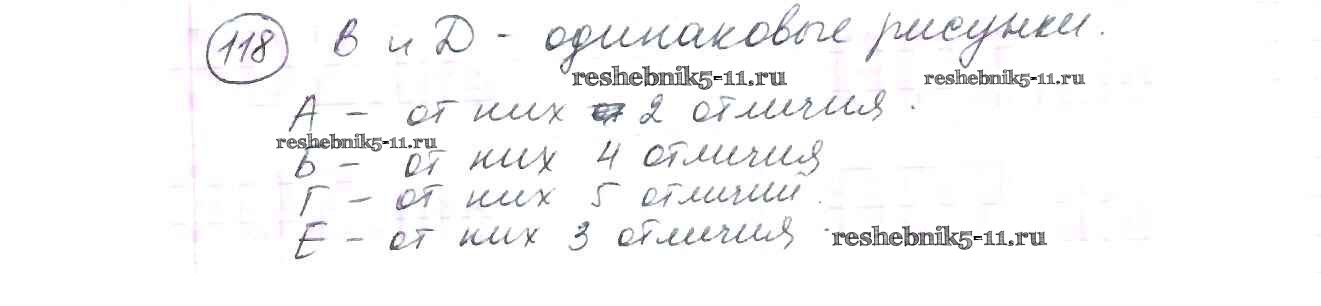 118 В и Д - одинаковые рисунки.
reshebnik5-11.ru reshebnik5-11.ru
А - от них 2 отличия.
reshebnik5-11.ru
Б - от них 4 отличия
Г - от них 5 отличий.
Е - от них 3 отличия reshebnik5-11.ru